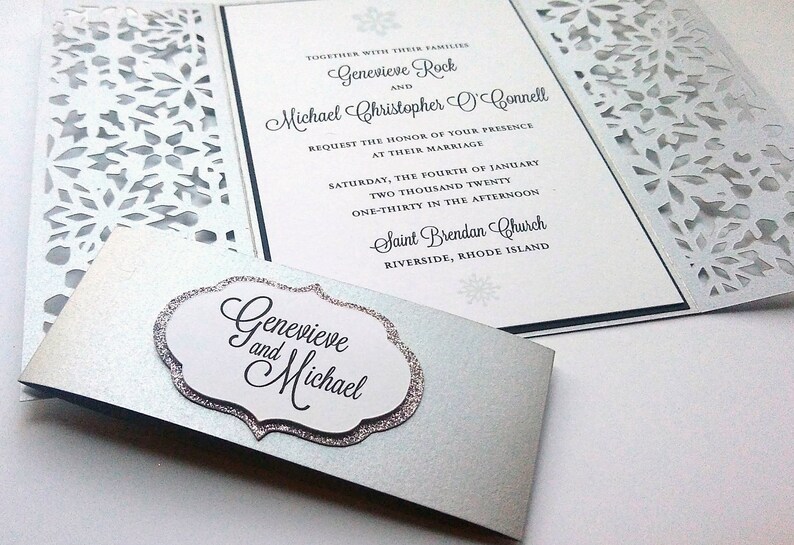 TOGETHER WITH THEIR FAMILIES
Genevieve Rock
AND
Michael Christopher O'Connell
REQUEST THE HONOR OF YOUR PRESENCE
AT THEIR MARRIAGE
SATURDAY, THE FOURTH OF JANUARY
TWO THOUSAND TWENTY
ONE-THIRTY IN THE AFTERNOON
Saint Brendan Church
RIVERSIDE, RHODE ISLAND
Genevieve
and
Michael